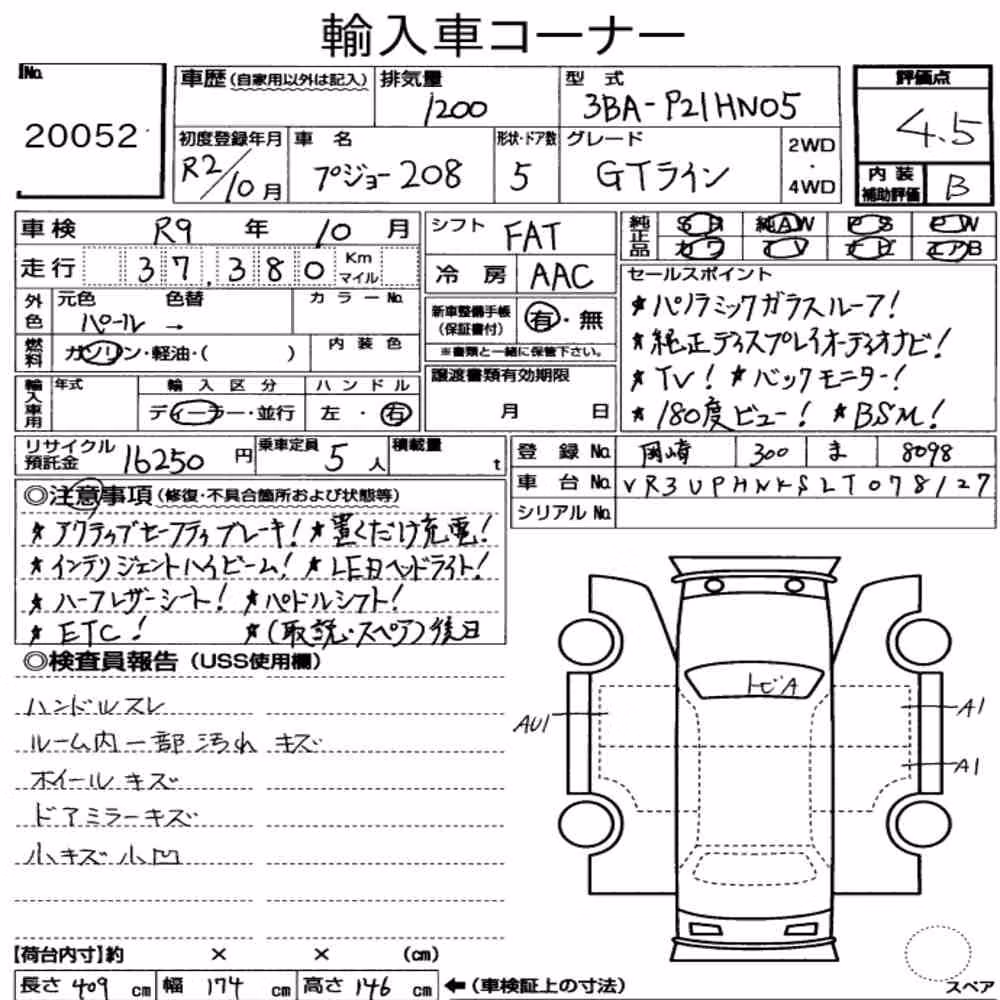 輸入車コーナー
No.
20052
車歴(自家用以外は記入)
排気量
1200
型式
3BA-P21HN05
評価点
4.5
初度登録年月
R2/10月
車名
プジョー208
形状・ドア数
5
グレード
GTライン
2WD
・
4WD
内装
補助評価
B
車検 R9 年 10 月
シフト FAT
純正品
SR 純AW PS PW
カワ TV ナビ エアB
走行 37,380 Km
マイル
冷房 AAC
セールスポイント
外色
元色 色替
パール →
カラーNo.
新車整備手帳
(保証書付)
有・無
※書類と一緒に保管下さい。
★パノラミックガラスルーフ!
★純正ディスプレイオーディオナビ!
★TV! ★バックモニター!
★180度ビュー! ★BSM!
燃料
ガソリン・軽油・( )
内装色
譲渡書類有効期限
月 日
輸入車用
年式
輸入区分
ディーラー・並行
ハンドル
左・右
リサイクル
預託金
16250円
乗車定員
5人
積載量
t
登録No. 岡崎 300 ま 8098
車台No. VR3UPHNKSLT078127
シリアルNo.
◎注意事項(修復・不具合箇所および状態等)
★アクティブセーフティブレーキ! ★置くだけ充電!
★インテリジェントハイビーム! ★LEDヘッドライト!
★ハーフレザーシート! ★パドルシフト!
★ETC! ★(取説・スペア)後日
◎検査員報告(USS使用欄)
ハンドルスレ
ルーム内一部汚れ キズ
ホイールキズ
ドアミラーキズ
小キズ小凹
トビA
AU1
A1
A1
【荷台内寸】約 × × (cm)
長さ 409 cm 幅 174 cm 高さ 146 cm ←(車検証上の寸法)
スペア